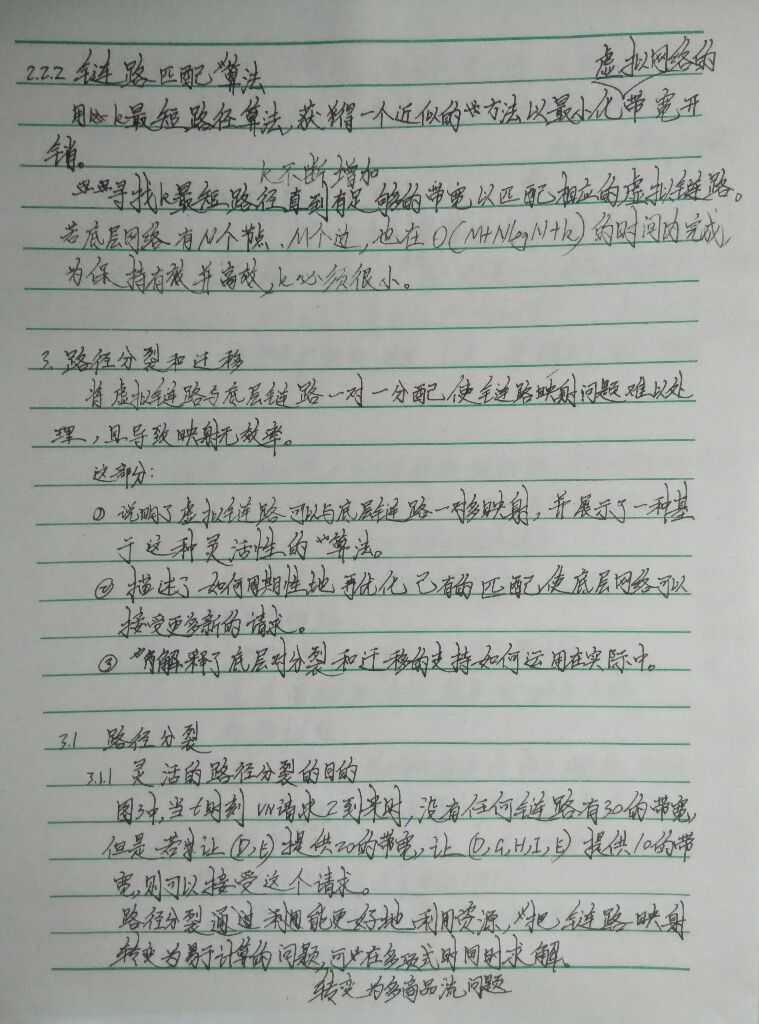 2.2.2 链路匹配算法
虚拟网络的
用k最短路径算法,获得一个近似的方法以最小化带宽开
销。
k不断增加
寻找k最短路径直到有足够的带宽以匹配相应的虚拟链路。
若底层网络有N个节点、M个边,也在O(M+NlogN+k)的时间内完成,
为保持有效并高效,k必须很小。
3. 路径分裂和迁移
将虚拟链路与底层链路一对一分配,使链路映射问题难以处
理,且导致映射无效率。
这部分:
① 说明了虚拟链路可以与底层链路一对多映射,并展示了一种基
于这种灵活性的算法。
② 描述了如何周期性地再优化已有的匹配,使底层网络可以
接受更多新的请求。
③ 解释了底层对分裂和迁移的支持如何运用在实际中。
3.1 路径分裂
3.1.1 灵活的路径分裂的目的
图3中,当t时刻VN请求2到来时,没有任何链路有30的带宽,
但是若让(D,E)提供20的带宽,让(D,G,H,I,E)提供10的带
宽,则可以接受这个请求。
路径分裂通过利用能更好地利用资源,把链路映射
转变为易于计算的问题,可在多项式时间时求解。
转变为多商品流问题